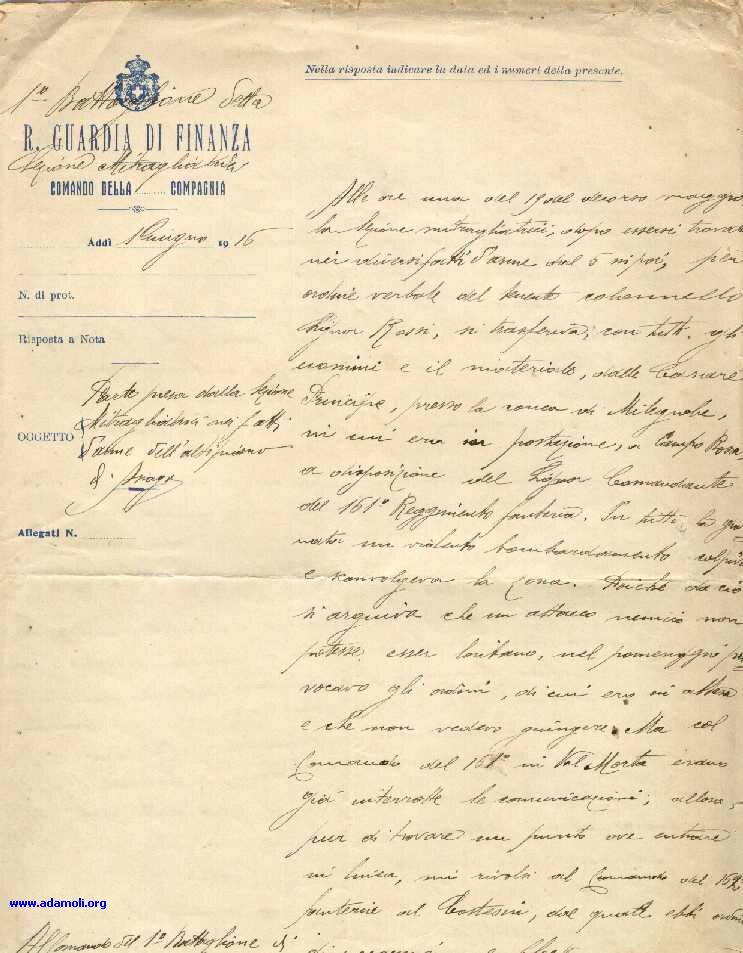 Nella risposta indicare la data ed i numeri della presente.
1° Battaglione della
R. GUARDIA DI FINANZA
Sezione Mitragliatrici
COMANDO DELLA ........ COMPAGNIA
Addì 1 Giugno 1916
N. di prot.
Risposta a Nota
OGGETTO
Parte presa dalla Sezione
Mitragliatrici nei fatti
d'arme dell'altipiano
di
Allegati N.
Alle ore una del 19 del decorso maggio
la Sezione mitragliatrici, dopo essersi trovata
nei diversi fatti d'arme dal 5 in poi, per
ordine verbale del tenente colonnello
Signor Rossi, si trasferiva, con tutti gli
uomini e il materiale, dalle Casare
Principe, presso la conca di Milegrobe,
in cui era in postazione, a Campo Rosa
a disposizione del Signor Comandante
del 161° Reggimento fanteria. In tutta la gior
nata un violento bombardamento colpiva
e sconvolgeva la zona. Poichè da ciò
si arguiva che un attacco nemico non
potesse esser lontano, nel pomeriggio
vocavo gli ordini, di cui ero in attesa
e che non vedevo giungere. Ma col
Comando del 161° in Val Morta erano
già interrotte le comunicazioni; allora,
pur di trovare un punto ove entrare
in linea, mi rivolsi al Comando del 162°
fanteria al Costesin, dal quale ebbi ordine
Al Comando del 1° Battaglione di
www.adamoli.org